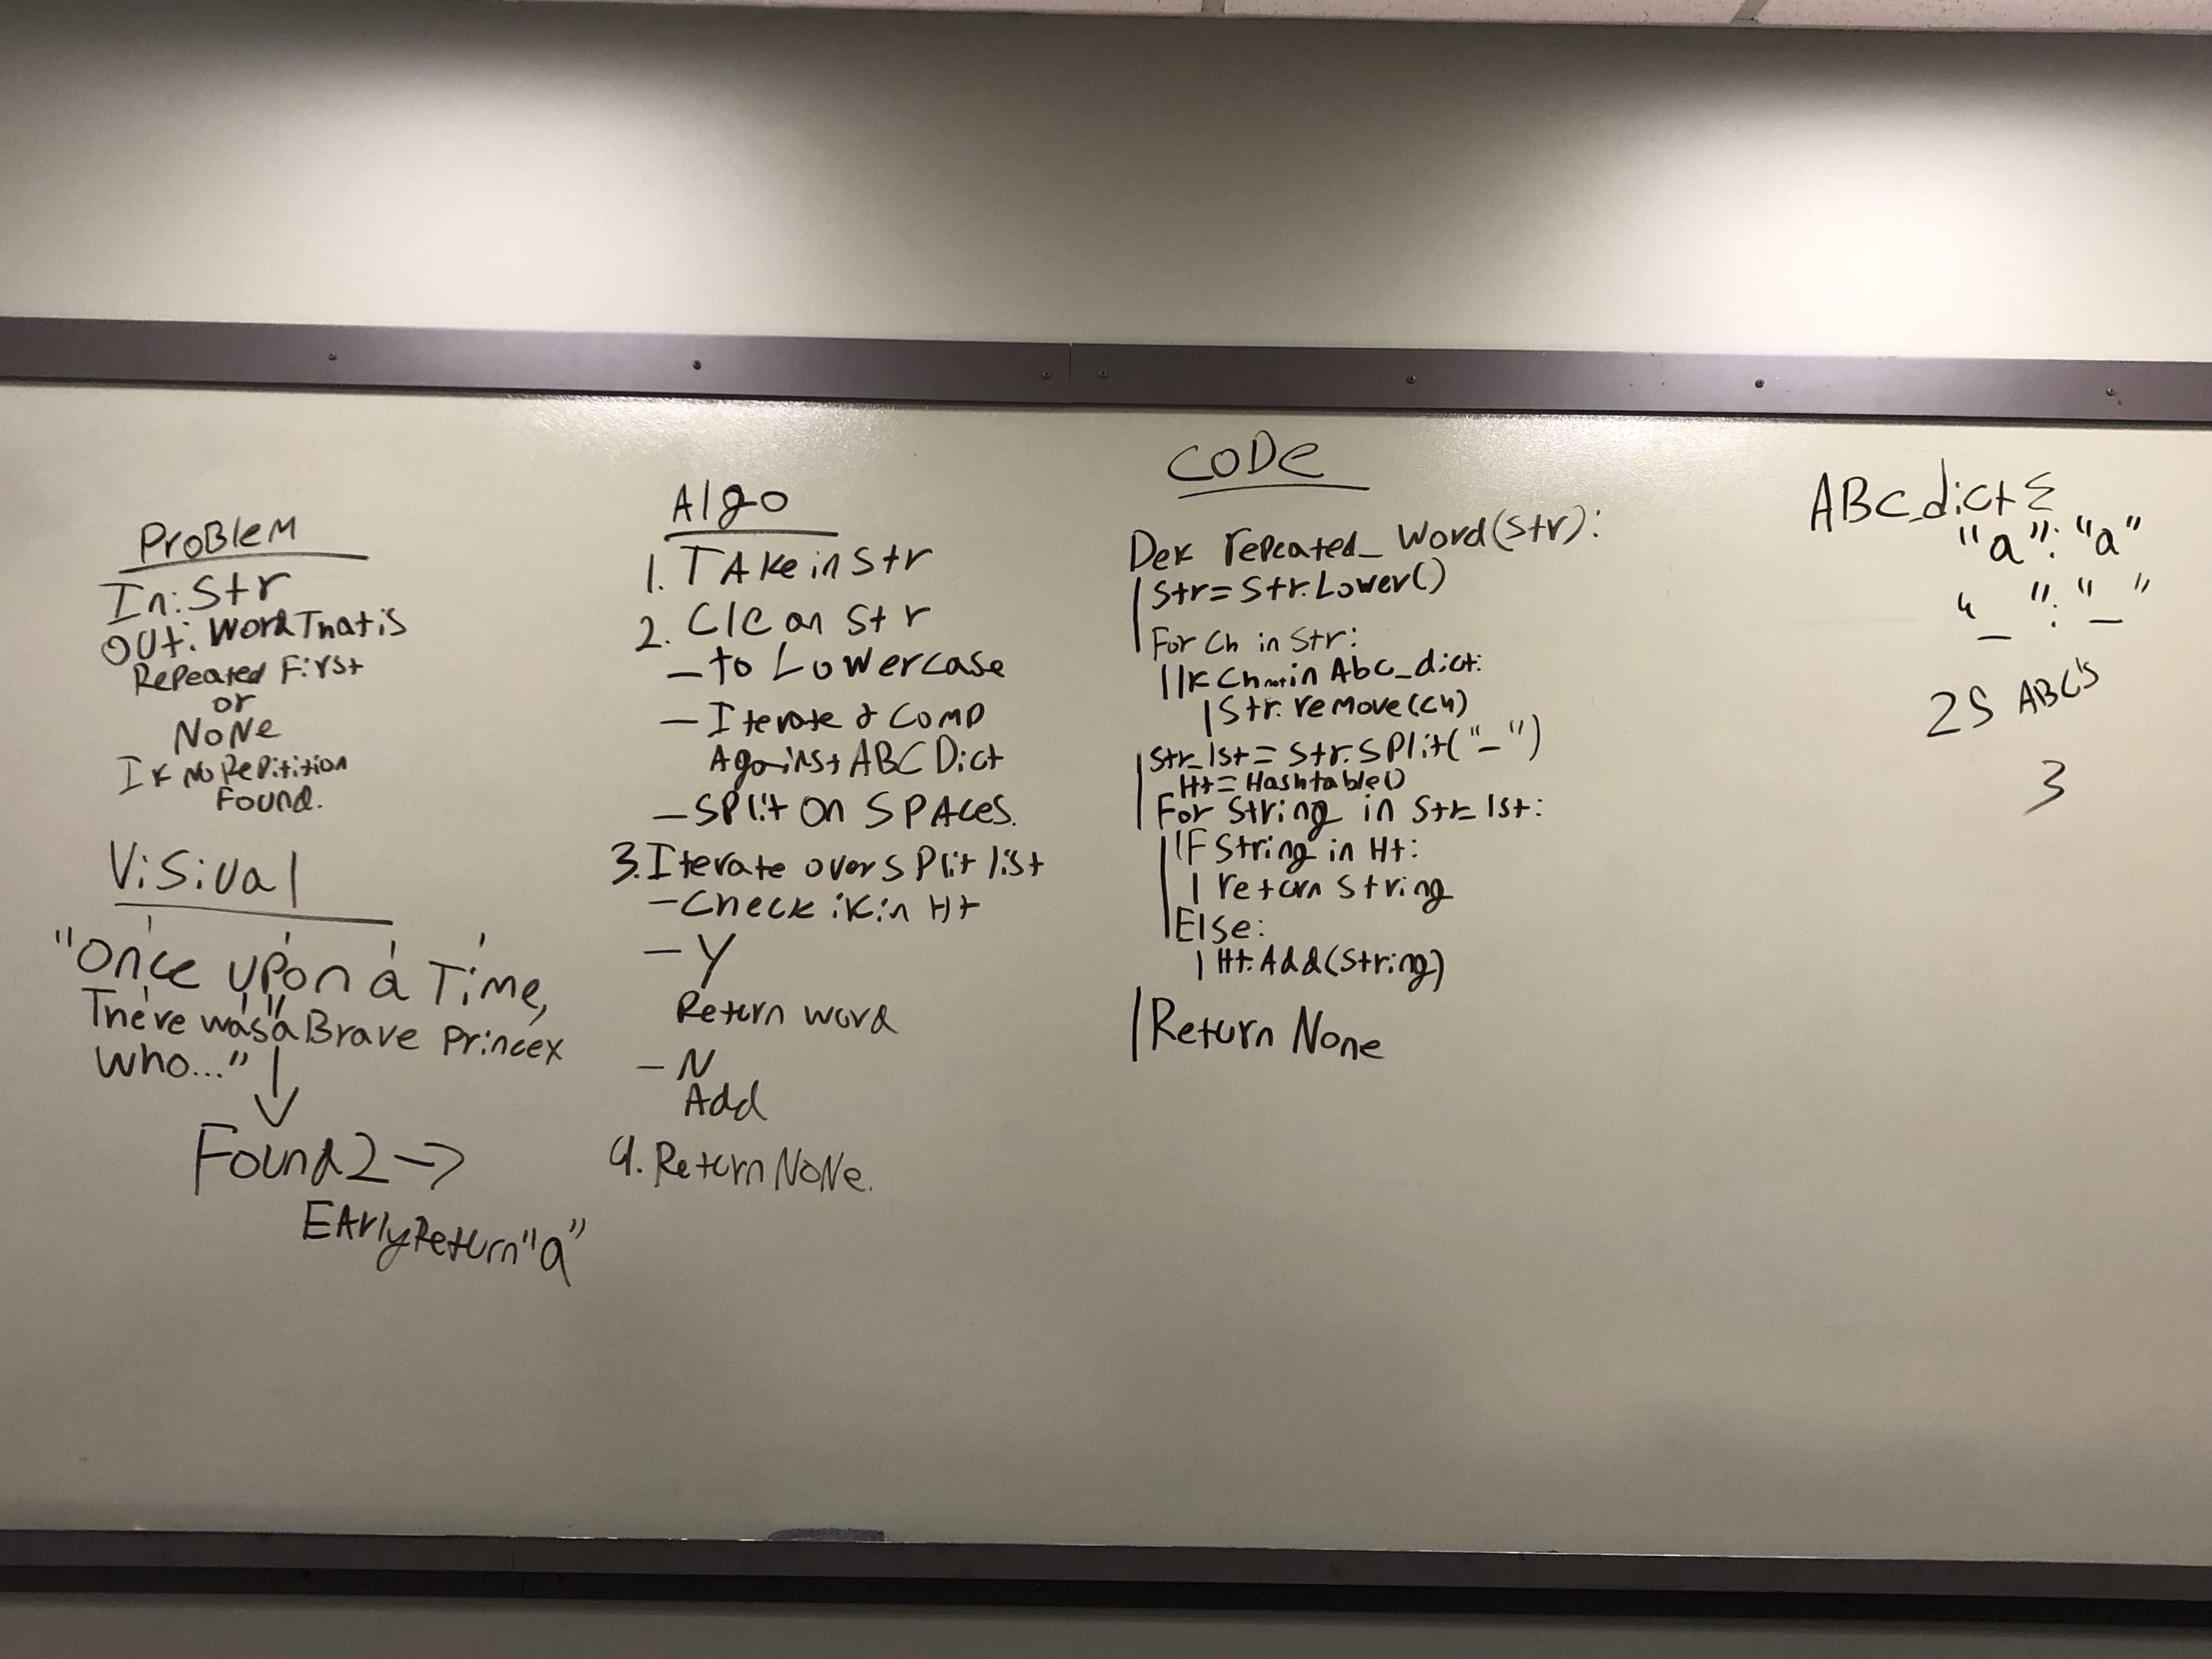 Problem
In: Str
Out: Word That is
Repeated First
or
None
If no Repitition
Found.
Visiual
"Once upon a Time,
There was a Brave Princex
who..."
Found 2 ->
Early Return "a"
Algo
1. Take in Str
2. Clean Str
- to Lowercase
- Iterate & Comp
Against ABC Dict
- Split on Spaces.
3. Iterate over split list
- Check if in Ht
- Y
Return word
- N
Add
4. Return None.
CODE
Def repeated_word(str):
Str = Str.Lower()
For Ch in Str:
If Ch not in Abc_dict:
Str.remove(ch)
Str_lst = Str.Split("_")
Ht = Hashtable()
For String in Str_lst:
If String in Ht:
return String
Else:
Ht.Add(String)
Return None
ABC_dict {
"a": "a"
"_": "_"
25 ABC's
3